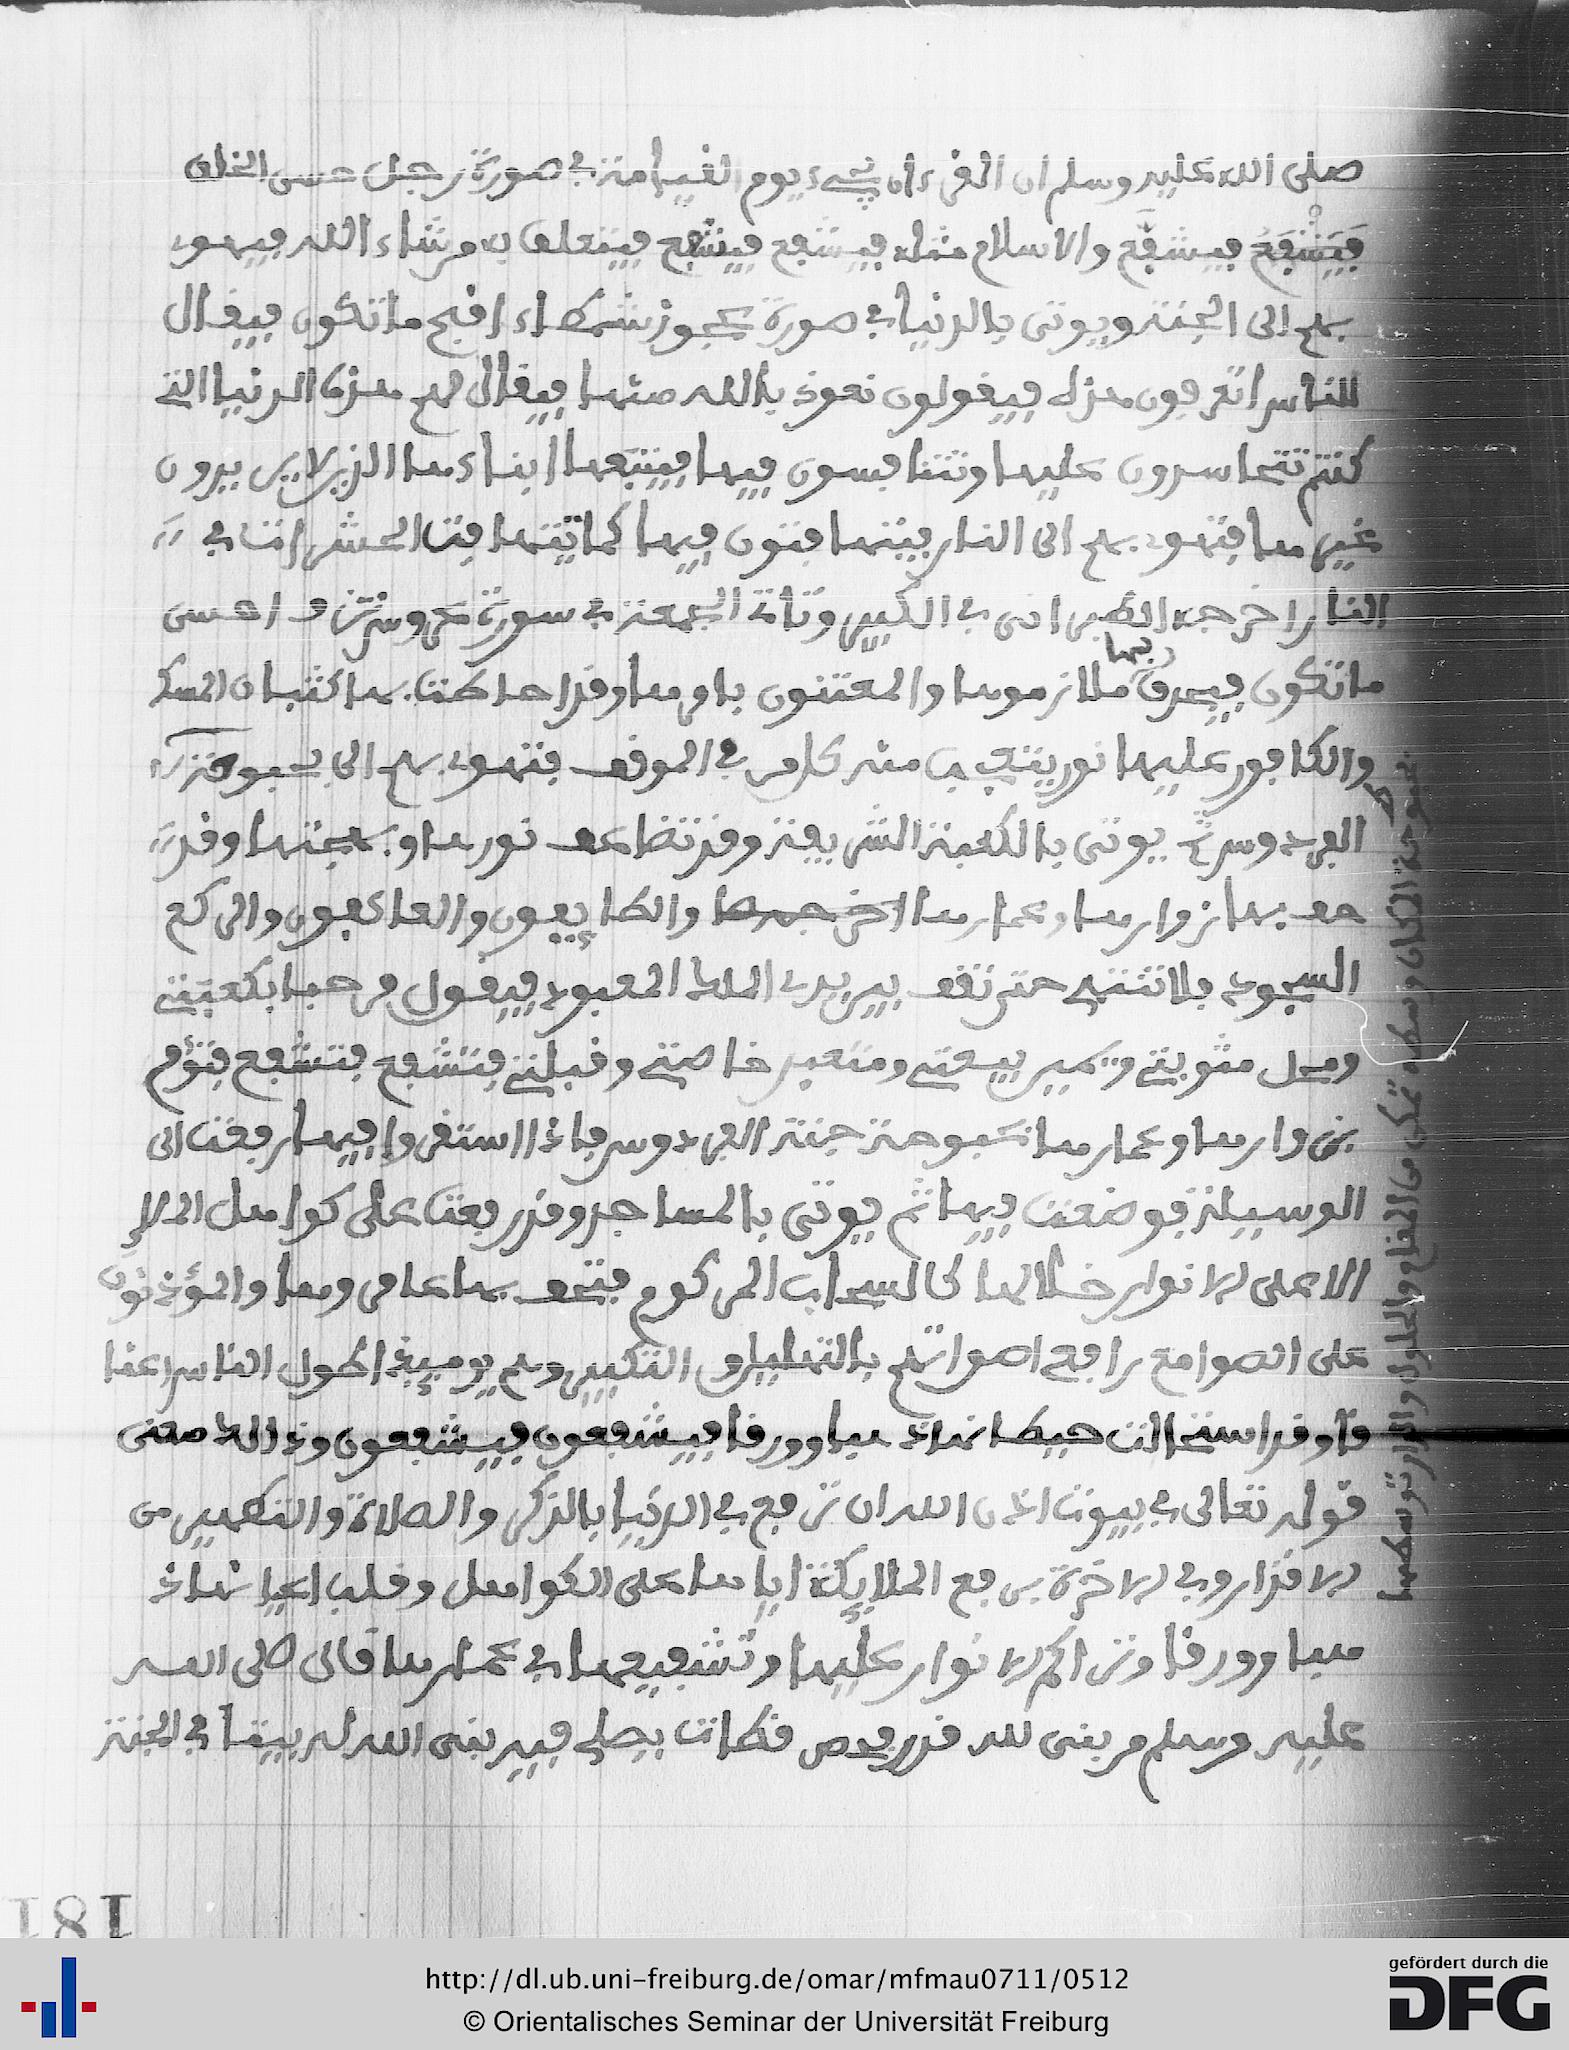 صلى الله عليه وسلم ان القرءان يجيء يوم القيامة في صورة رجل حسن الخلق
فيشفع فيشفع والاسلام مثله فيشفع فيشفع فيتعلق به من شاء الله فيهوي
بهم الى الجنة ويوتى بالدنيا في صورة عجوز شمطاء اقبح ما تكون فيقال
للناس اتعرفون هذه فيقولون نعوذ بالله منها فيقال لهم هذه الدنيا التي
كنتم تتحاسدون عليها وتتنافسون فيها فيتبعها ابناءها الذين لا يريدون
غيرها فتهوي بهم الى النار فيتهافتون فيها كما تتهافت الحشرات في
النار اخرجه الطبراني في الكبير وتاتي الجمعة في سورة عروس تزف احسن
ما تكون فيحدق بها ملازموها والمعتنون بامرها وقد احاطت بها كثبان المسك
والكافور عليها نور يتعجب منه كل من في الموقف فتهوي بهم الى بحبوحة
الفردوس ثم يوتى بالكعبة الشريفة وقد تضاعف نورها وبهجتها وقد
حف بها زوارها وعمارها والطايفون والعاكفون والركع
السجود فلا تنتهي حتى تقف بين يدي الملك المعبود فيقول مرحبا بكعبتي
ومحل مثوبتي ويمين بيعتي ومتعبد خاصتي وقبلتي فتشفع فتشفع فتؤم
بزوارها وعمارها بحبوحة جنة الفردوس فاذا استقروا فيها رفعت الى
الوسيلة فوضعت فيها ثم يوتى بالمساجد وقد رفعت على كواهل الملإ
الاعلى الانوار خلالها كالسحاب المركوم فتحف بها عامروها والمؤذنون
على الصوامع رافعي اصواتهم بالتهليل والتكبير وهم يوميذ اطول الناس اعنا
قا وقد استحالت حيطانها ذهبا وورقا فيشفعون فيشفعون وذلك معنى
قوله تعالى في بيوت اذن الله ان ترفع في الدنيا بالذكر والصلاة والتطهير من
الاقذار وفي الاخرة برفع الملايكة اياها على الكواهل وقلب اعيانها ذ
هبا وورقا وتراكم الانوار عليها وتشفيعها في عمارها قال صلى الله
عليه وسلم من بنى لله قدر مفحص قطات يصلي فيه بنى الله له بيتا في الجنة
181
http://dl.ub.uni-freiburg.de/omar/mfmau0711/0512
© Orientalisches Seminar der Universität Freiburg
gefördert durch die
DFG